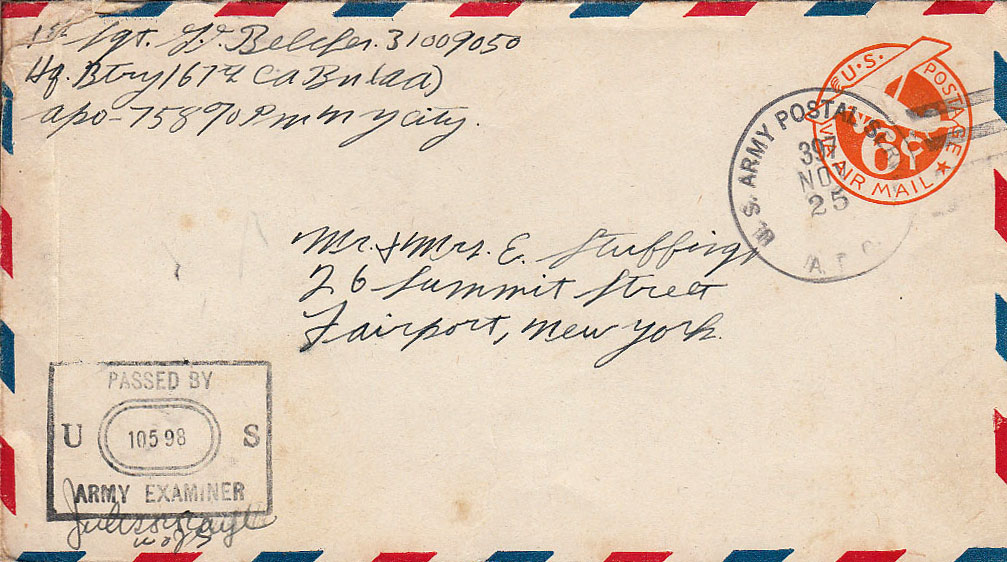 1st Sgt. L.V. Belcher. 31009050
Hq. Btry 167th CA Bn (aa)
apo-758 % Pm N Y City.
U.S. POSTAGE
VIA AIR MAIL
6¢
U.S. ARMY POSTAL
397
NOV
25
A. P. O.
Mr. & Mrs. E. Stuffing
26 Summit Street
Fairport, New York.
PASSED BY
U 10598 S
ARMY EXAMINER